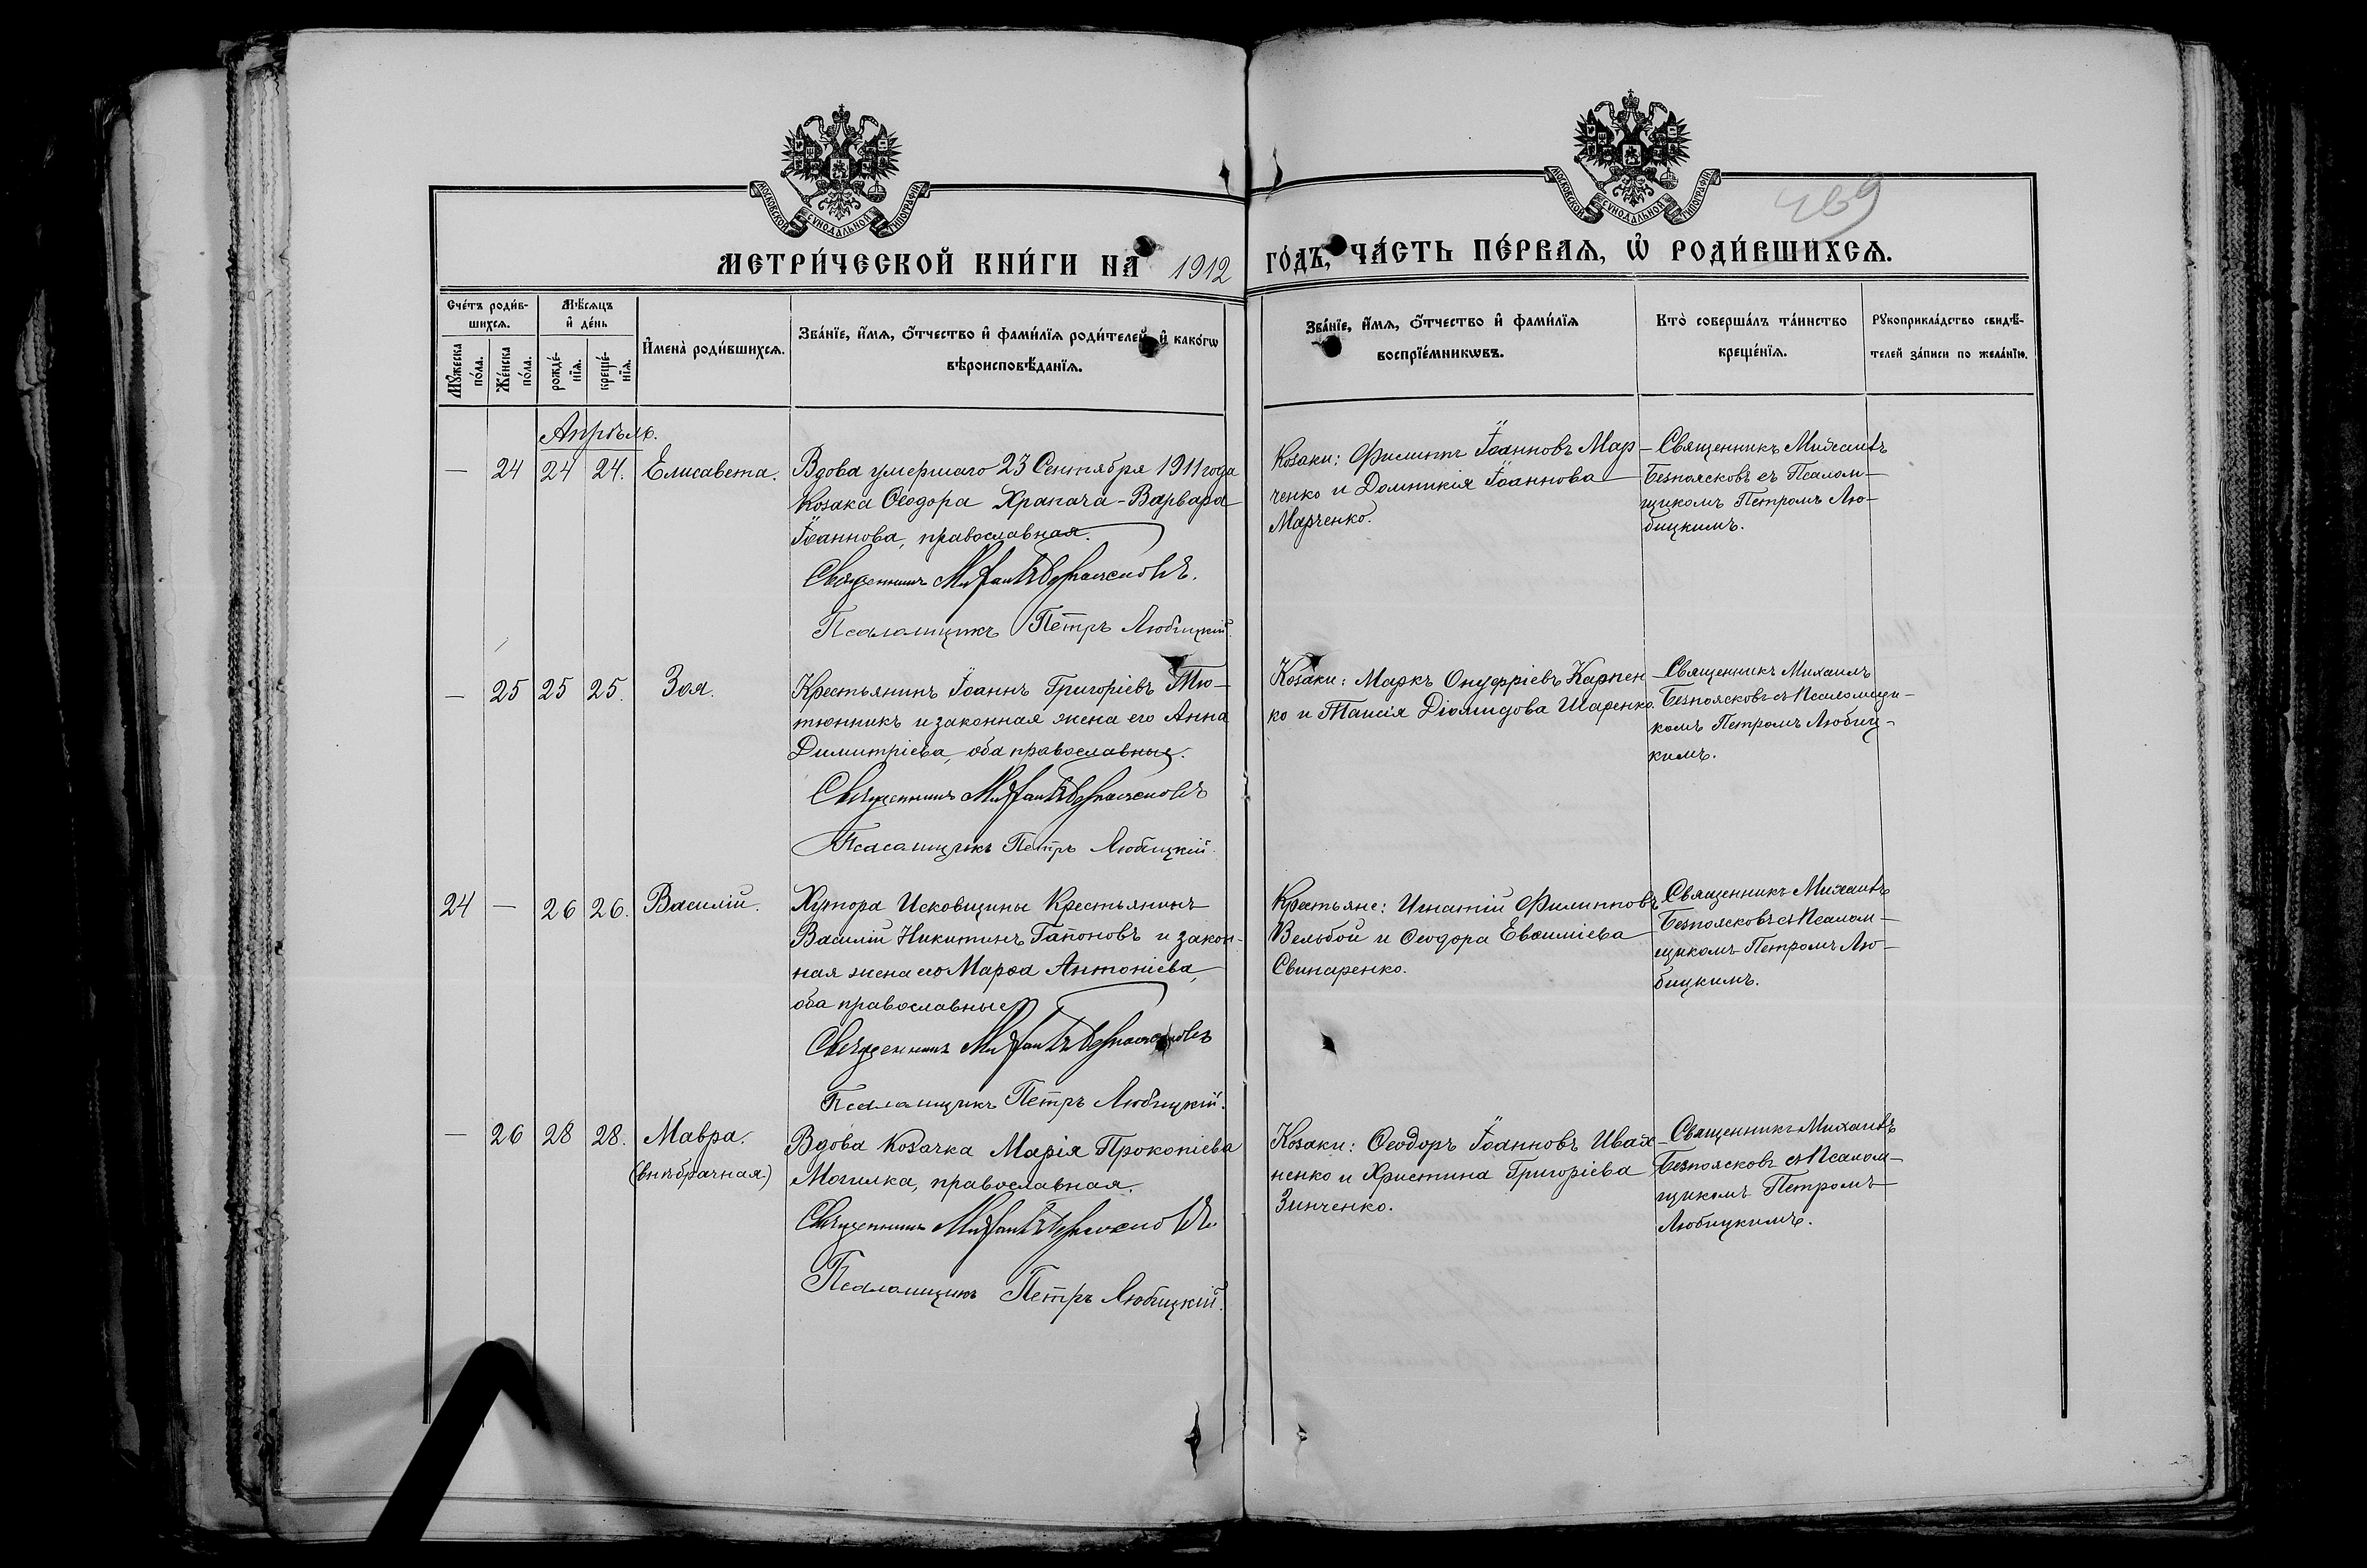 МОСКОВСКОЙ СѴНОДАЛЬНОЙ ТИПОГРАФІИ
МОСКОВСКОЙ СѴНОДАЛЬНОЙ ТИПОГРАФІИ
469
МЕТРИ́ЧЕСКОЙ КНИ́ГИ НА 1912 ГО́ДЪ, ЧА́СТЬ ПЕ́РВАѦ, Ѡ РОДИ́ВШИХСѦ.
Сче́тъ роди́в-
шихсѧ.
Мꙋ́жеска
по́ла.
Же́нска
по́ла.
Мѣ́сѧцъ
и҆ де́нь
рожде́-
нїѧ.
креще́-
нїѧ.
И҆мена̀ роди́вшихсѧ.
Зва́нїе, и҆́мѧ, ѻ҆́тчество и҆ фами́лїѧ роди́телей, и҆ како́гѡ
вѣроисповѣ́данїѧ.
Зва́нїе, и҆́мѧ, ѻ҆́тчество и҆ фами́лїѧ
воспрїе́мникѡвъ.
Кто̀ соверша́лъ та́инство
креще́нїѧ.
Рꙋкоприкла́дство свидѣ́-
телей за́писи по жела́нїю.
Апрѣль.
— 24 24 24. Елисавета.
Вдова умершаго 23 Сентября 1911 года
Козака Ѳеодора Храпача - Варвара
Іоаннова, православная.
Священникъ Михаилъ Безпоясковъ.
Псаломщикъ Петръ Любицкій.
Козаки: Филиппъ Іоанновъ Мар-
ченко и Домникія Іоаннова
Марченко.
Священникъ Михаилъ
Безпоясковъ съ Псалом-
щикомъ Петромъ Лю-
бицкимъ.
— 25 25 25. Зоя.
Крестьянинъ Іоаннъ Григоріевъ Тю-
тюнникъ и законная жена его Анна
Димитріева, оба православные.
Священникъ Михаилъ Безпоясковъ
Псаломщикъ Петръ Любицкій.
Козаки: Маркъ Онуфріевъ Карпен-
ко и Таисія Діомидова Шаренко.
Священникъ Михаилъ
Безпоясковъ съ Псаломщи-
комъ Петромъ Любиц-
кимъ.
24 — 26 26. Василій.
Хутора Исковщины Крестьянинъ
Василій Никитинъ Гапоновъ и закон-
ная жена его Марѳа Антоніева,
оба православные
Священникъ Михаилъ Безпоясковъ
Псаломщикъ Петръ Любицкій.
Крестьяне: Игнатій Филипповъ
Вельбой и Ѳеодора Евѳиміева
Свинаренко.
Священникъ Михаилъ
Безпоясковъ съ Псалом-
щикомъ Петромъ Лю-
бицкимъ.
— 26 28 28. Мавра.
(внѣбрачная.)
Вдова Козачка Марія Прокопіева
Могилка, православная.
Священникъ Михаилъ Безпоясковъ
Псаломщикъ Петръ Любицкій.
Козаки: Ѳеодоръ Іоанновъ Иваx-
ненко и Христина Григоріева
Зинченко.
Священникъ Михаилъ
Безпоясковъ съ Псалом-
щикомъ Петромъ
Любицкимъ.